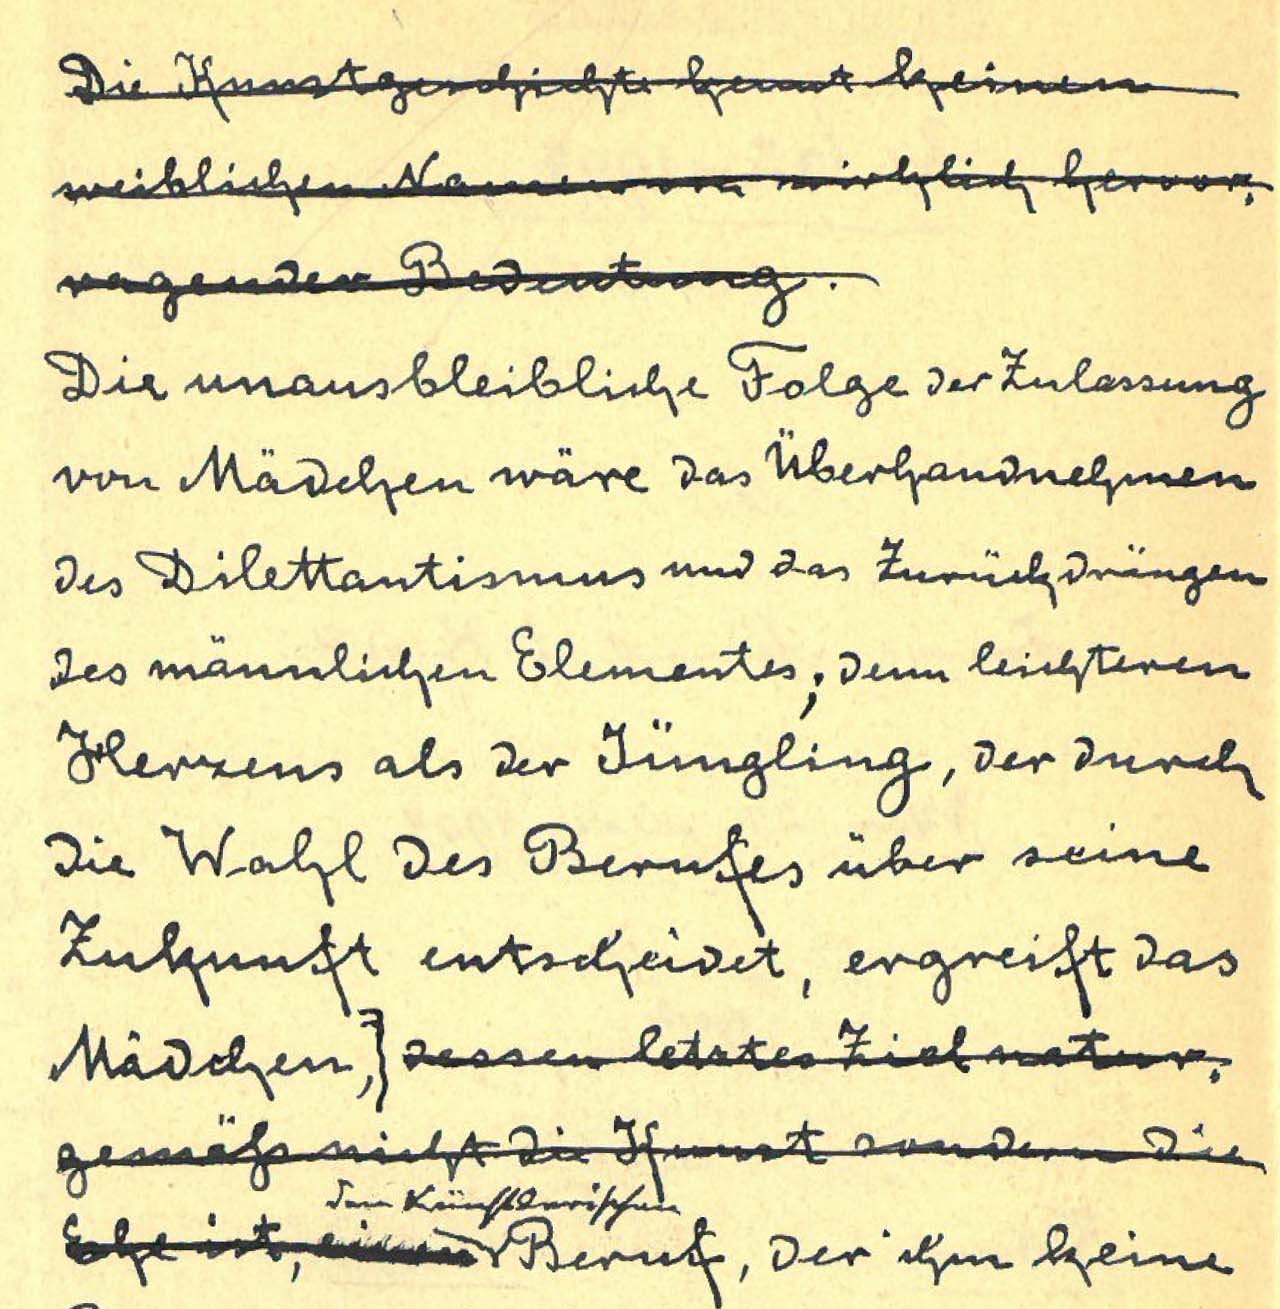 Die Kunstgeschichte kennt keinen
weiblichen Namen von wirklich hervor-
ragender Bedeutung.
Die unausbleibliche Folge der Zulassung
von Mädchen wäre das Überhandnehmen
des Dilettantismus und das Zurückdrängen
des männlichen Elementes; denn leichteren
Herzens als der Jüngling, der durch
die Wahl des Berufes über seine
Zukunft entscheidet, ergreift das
Mädchen, dessen letztes Ziel natur-
gemäß nicht die Kunst sondern die
den künstlerischen
Ehe ist, einen Beruf, der ihm keine